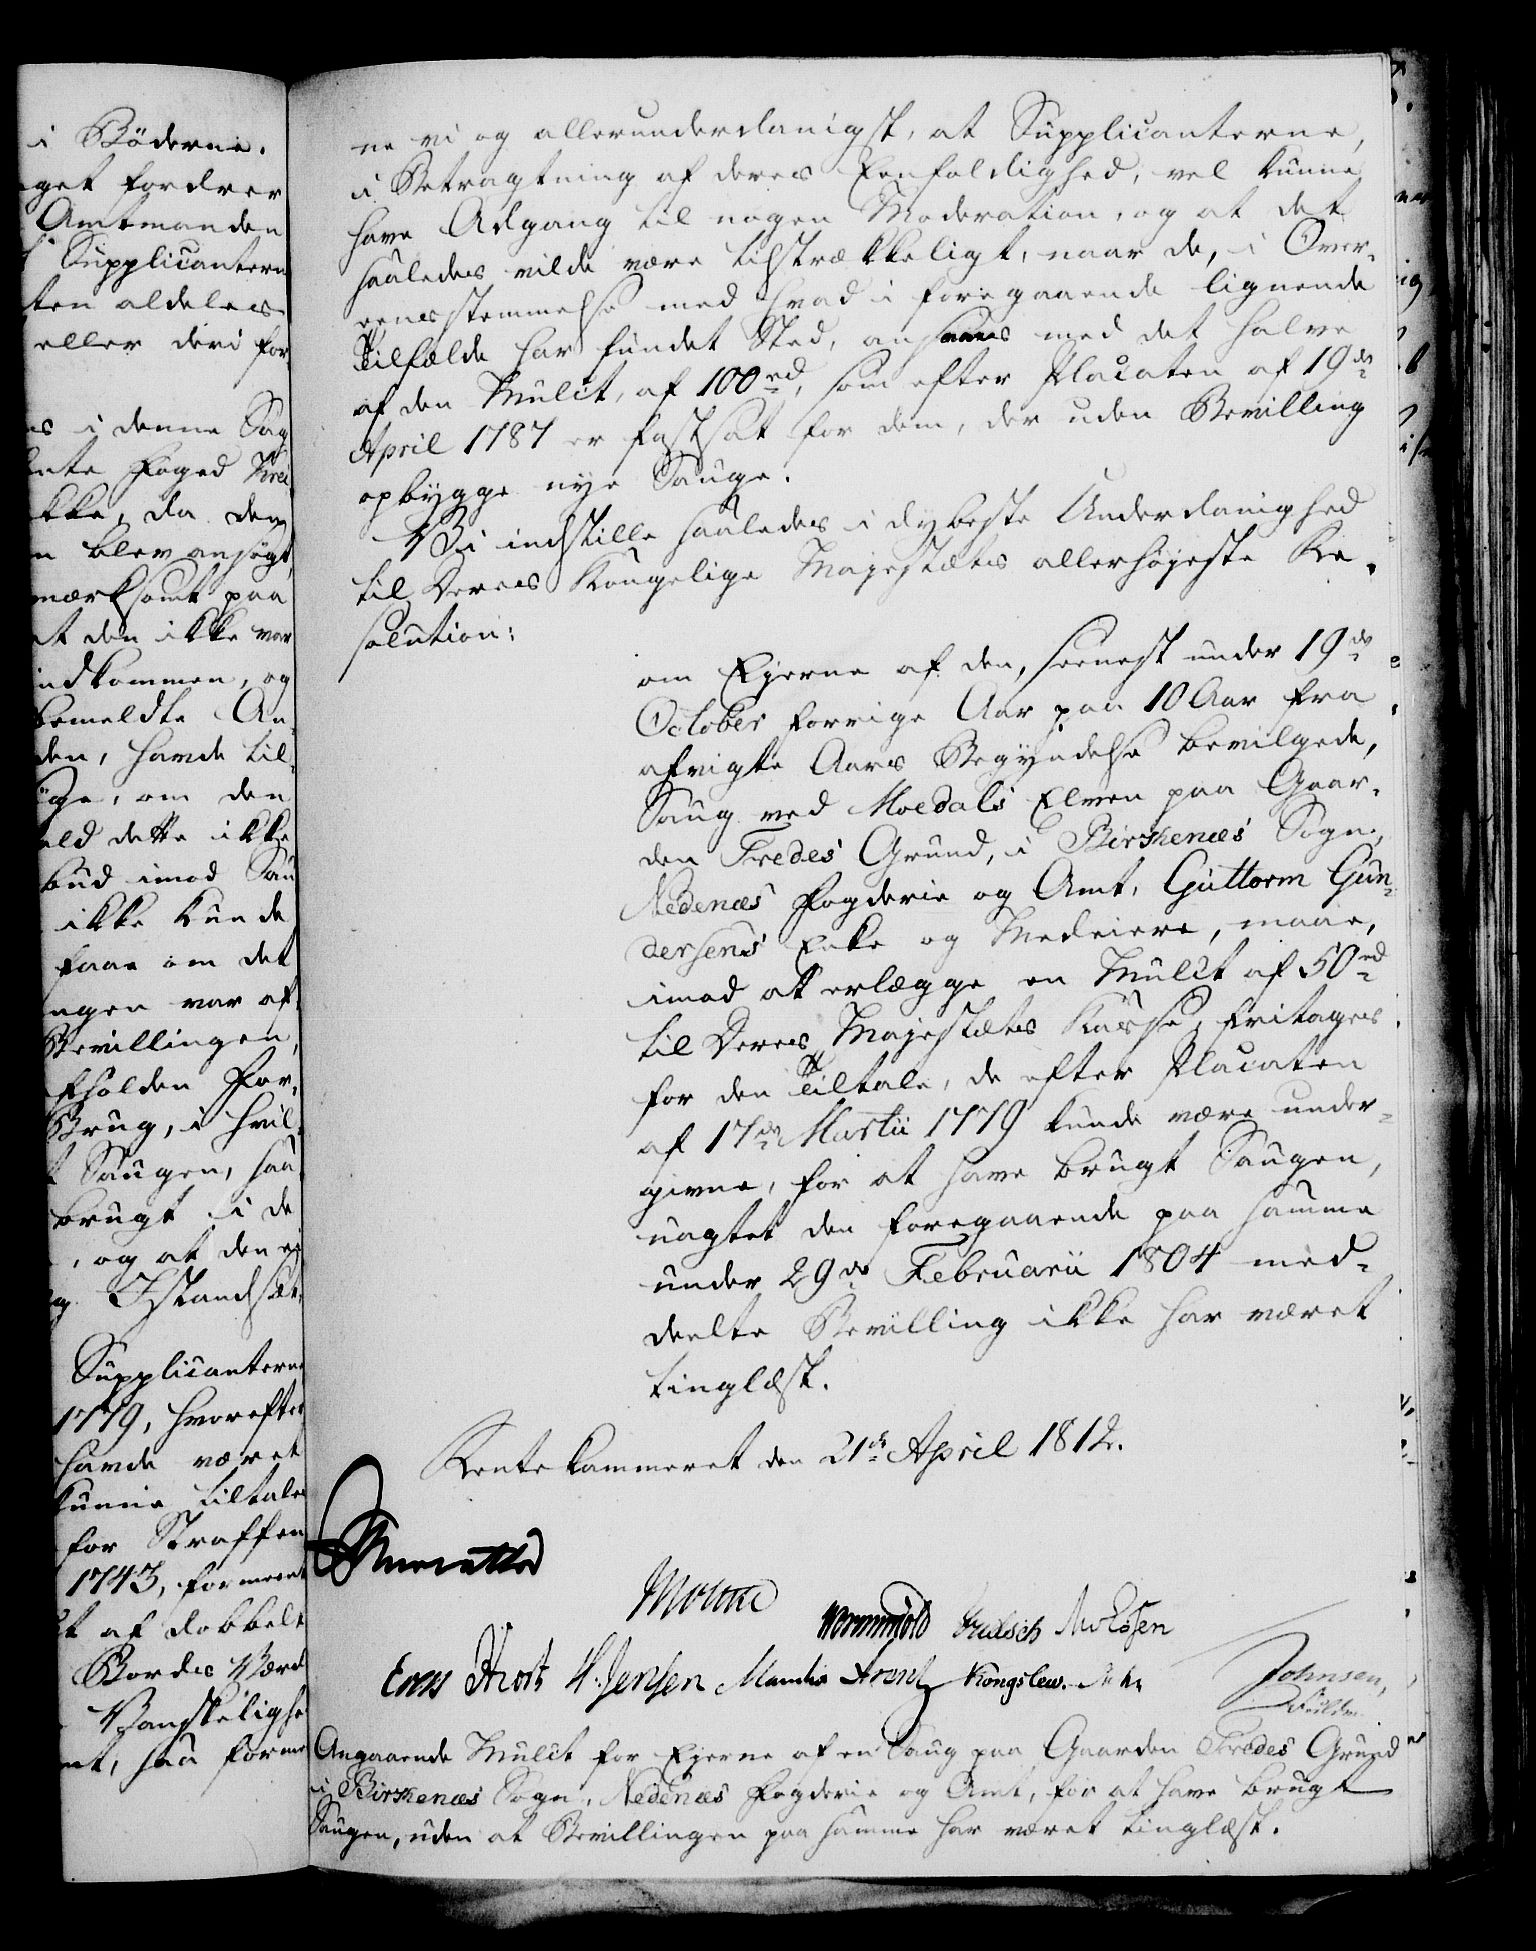 i Böderne.
get fordrer
Amtmanden
Supplicantern
ten aldeles
eller deri for
s i denne Sag
Foged
kke, da den
n blev ansögt,
mærksomt paa
t den ikke var
indkommen, og
bemeldte An-
den, havde til-
öge, om den
eld dette ikke
bud imod Sau
ikke kunde
faae om det
ngen var af-
Bevillingen,
holden For-
Brug, i hvil-
t Saugen, saa
brugt i de
, og at den ej
g Istandsæt-
Supplicanterne
1779, hvorefter
havde været
kunne tiltales
for Straffen
1743, formeent
t af dobbelt
Bordes Værd
Vanskelighe
mt, saa forme
ne vi og allerunderdanigst, at Supplicanterne,
i Betragtning af deres Eenfoldighed, vel kunne
have Adgang til nogen Moderation, og at det
saaledes vilde være tilstrækkeligt, naar de, i Over-
eensstemmelse med hvad i foregaaende lignende
Tilfælde har fundet Sted, ansees med det halve
af den Mulct, af 100 rd, som efter Placaten af 19de
April 1787 er fastsat for dem, der uden Bevilling
opbygge nye Sauge.
Vi indstille saaledes i dybeste Underdanighed
til Deres Kongelige Majestæts allerhøjeste Re-
solution:
om Ejerne af den, seenest under 19de
October forrige Aar paa 10 Aar fra
afvigte Aars Begyndelse bevilgede,
Saug ved Moedals Elven paa Gaar-
den Tredes Grund, i Birkenæs Sogn,
Nedenæs Fogderie og Amt, Guttorm Gun-
dersens Enke og Medeiere, maae,
imod at erlægge en Mulct af 50 rd
til Deres Majestæts Kasse, fritages
for den Tiltale, de efter Placaten
af 17de Martii 1779 kunde være under-
givne, for at have brugt Saugen,
uagtet den foregaaende paa samme
under 29de Februarii 1804 med-
deelte Bevilling ikke har været
tinglæst.
Rentekammeret den 21de April 1812.
Wormskiold
H. Jensen
Kongslew.
Johnsen,
Angaaende Mulct for Ejerne af en Saug paa Gaarden Tredes Grund
i Birkenæs Sogn, Nedenæs Fogderie og Amt, for at have brugt
Saugen, uden at Bevillingen paa samme har været tinglæst.